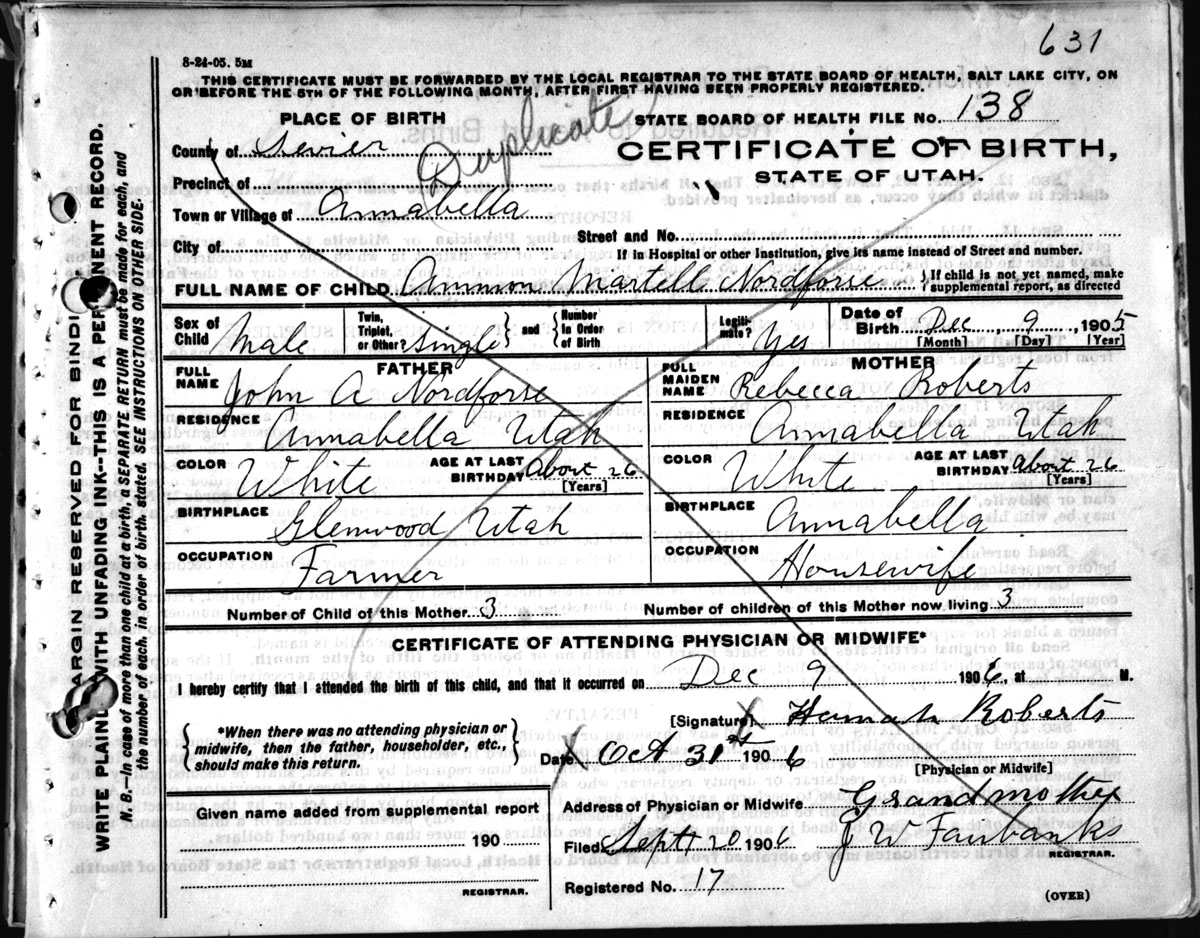 631
8-24-05. 5M
THIS CERTIFICATE MUST BE FORWARDED BY THE LOCAL REGISTRAR TO THE STATE BOARD OF HEALTH, SALT LAKE CITY, ON
OR BEFORE THE 5TH OF THE FOLLOWING MONTH, AFTER FIRST HAVING BEEN PROPERLY REGISTERED.
PLACE OF BIRTH
STATE BOARD OF HEALTH FILE No. 138
County of Sevier
Duplicate
CERTIFICATE OF BIRTH,
Precinct of
STATE OF UTAH.
Town or Village of Annabella
Street and No.
City of
If in Hospital or other Institution, give its name instead of Street and number.
FULL NAME OF CHILD Ammon Martell Nordforse
{If child is not yet named, make supplemental report, as directed
Sex of Child Male
Twin, Triplet, or Other? Single } and { Number in Order of Birth
Legitimate? Yes
Date of Birth Dec 9, 1905
[Month] [Day] [Year]
FATHER
MOTHER
FULL NAME John A Nordforse
FULL MAIDEN NAME Rebecca Roberts
RESIDENCE Annabella Utah
RESIDENCE Annabella Utah
COLOR White AGE AT LAST BIRTHDAY About 26 [Years]
COLOR White AGE AT LAST BIRTHDAY About 26 [Years]
BIRTHPLACE Glenwood Utah
BIRTHPLACE Annabella
OCCUPATION Farmer
OCCUPATION Housewife
Number of Child of this Mother 3
Number of children of this Mother now living 3
CERTIFICATE OF ATTENDING PHYSICIAN OR MIDWIFE*
I hereby certify that I attended the birth of this child, and that it occurred on Dec 9 1906, at M.
{*When there was no attending physician or midwife, then the father, householder, etc., should make this return.}
[Signature] X Hannah Roberts
Date X Oct 31st 1906
[Physician or Midwife]
Given name added from supplemental report
190
REGISTRAR.
Address of Physician or Midwife Grandmother
Filed Sept 20 1906 J W Fairbanks
REGISTRAR.
Registered No. 17
(OVER)
MARGIN RESERVED FOR BINDI
WRITE PLAINLY WITH UNFADING INK--THIS IS A PERMANENT RECORD.
N.B.--In case of more than one child at a birth, a SEPARATE RETURN must be made for each, and
the number of each, in order of birth, stated. SEE INSTRUCTIONS ON OTHER SIDE.